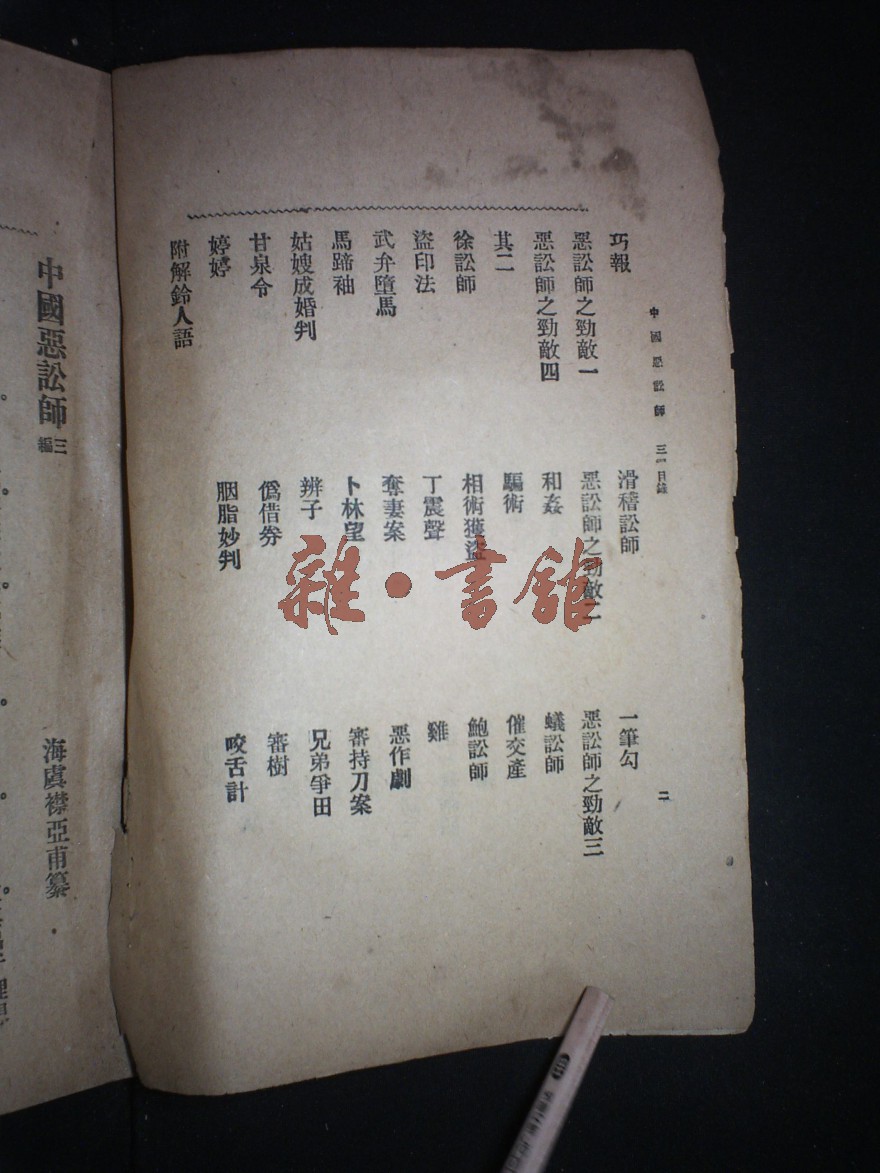 中國惡訟師 三編目錄 二
巧報 滑稽訟師 一筆勾
惡訟師之勁敵一 惡訟師之勁敵二 惡訟師之勁敵三
惡訟師之勁敵四 和姦 蟻訟師
其二 騙術 催交產
徐訟師 相術獲盜 鮑訟師
盜印法 丁震聲 雞
武弁墮馬 奪妻案 惡作劇
馬蹄袖 卜林望 審持刀案
姑嫂成婚判 辨子 兄弟爭田
甘泉令 僞借券 審樹
婷婷 胭脂妙判 咬舌計
附解鈴人語
中國惡訟師 三編
海虞襟亞甫纂
雜·書館